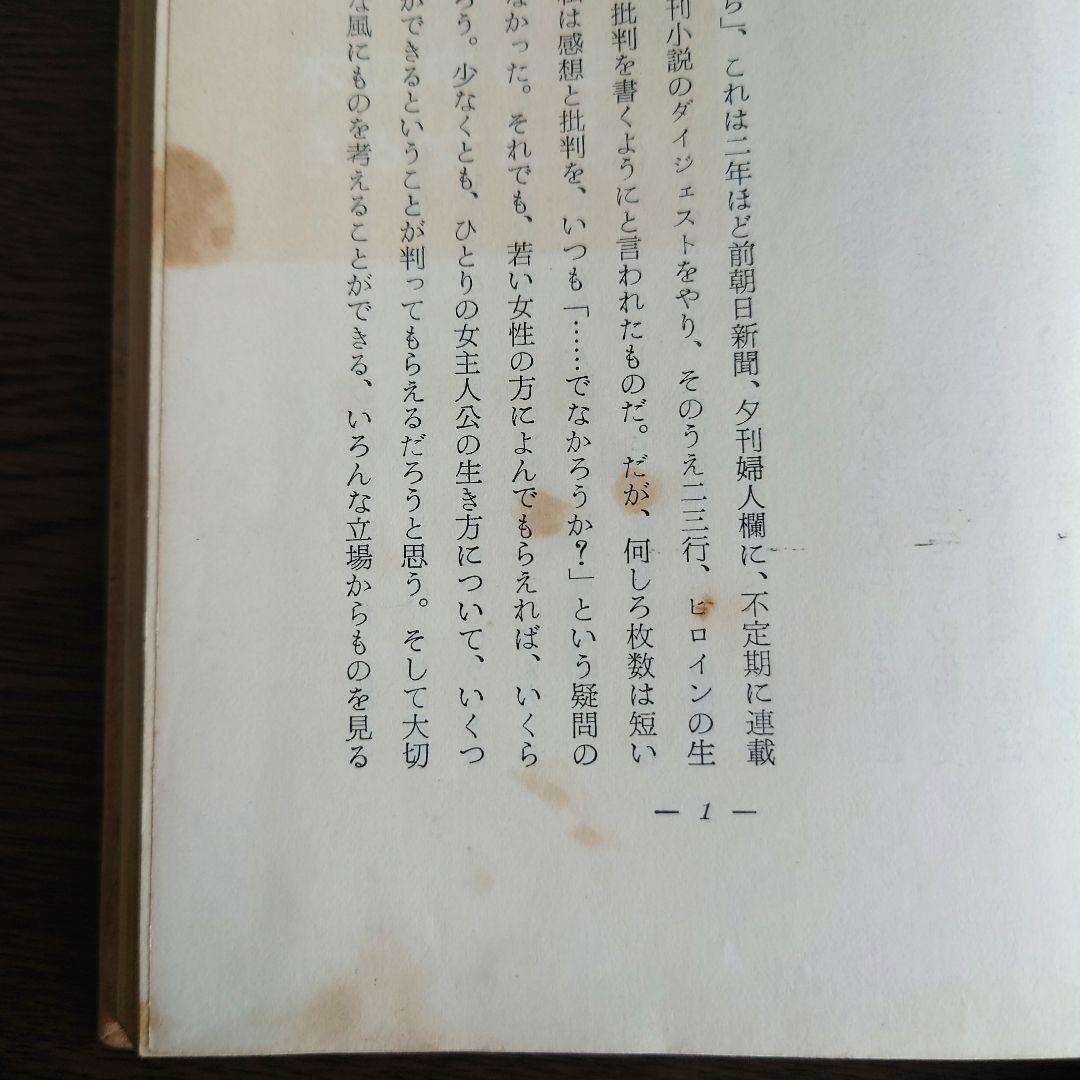 ら」、これは二年ほど前朝日新聞、夕刊婦人欄に、不定期に連載
刊小説のダイジェストをやり、そのうえ二三行、ヒロインの生
批判を書くようにと言われたものだ。だが、何しろ枚数は短い
私は感想と批判を、いつも「……でなかろうか？」という疑問の
なかった。それでも、若い女性の方によんでもらえれば、いくら
ろう。少なくとも、ひとりの女主人公の生き方について、いくつ
ができるということが判ってもらえるだろうと思う。そして大切
な風にものを考えることができる、いろんな立場からものを見る
— 1 —